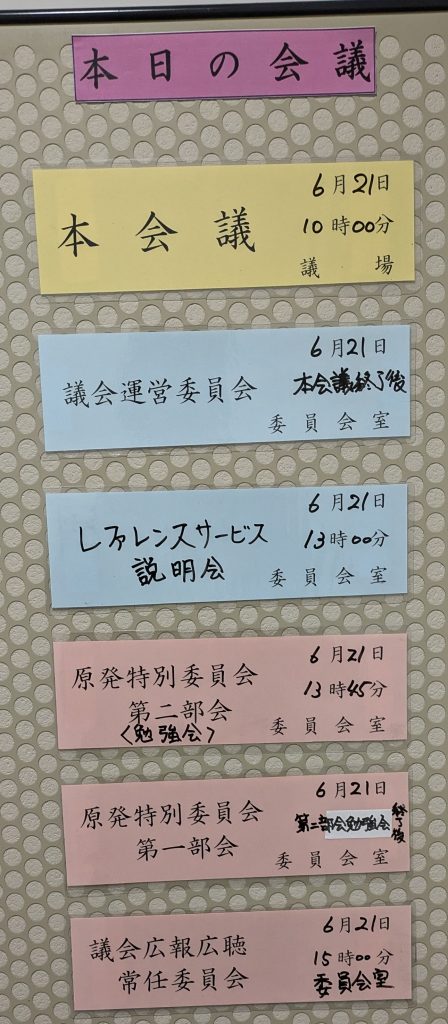 本日の会議
本会議
6月21日
10時00分
議場
議会運営委員会
6月21日
本会議終了後
委員会室
レファレンスサービス
説明会
6月21日
13時00分
委員会室
原発特別委員会
第二部会
〈勉強会〉
6月21日
13時45分
委員会室
原発特別委員会
第一部会
6月21日
第二部会勉強会終了後
委員会室
議会広報広聴
常任委員会
6月21日
15時00分
委員会室